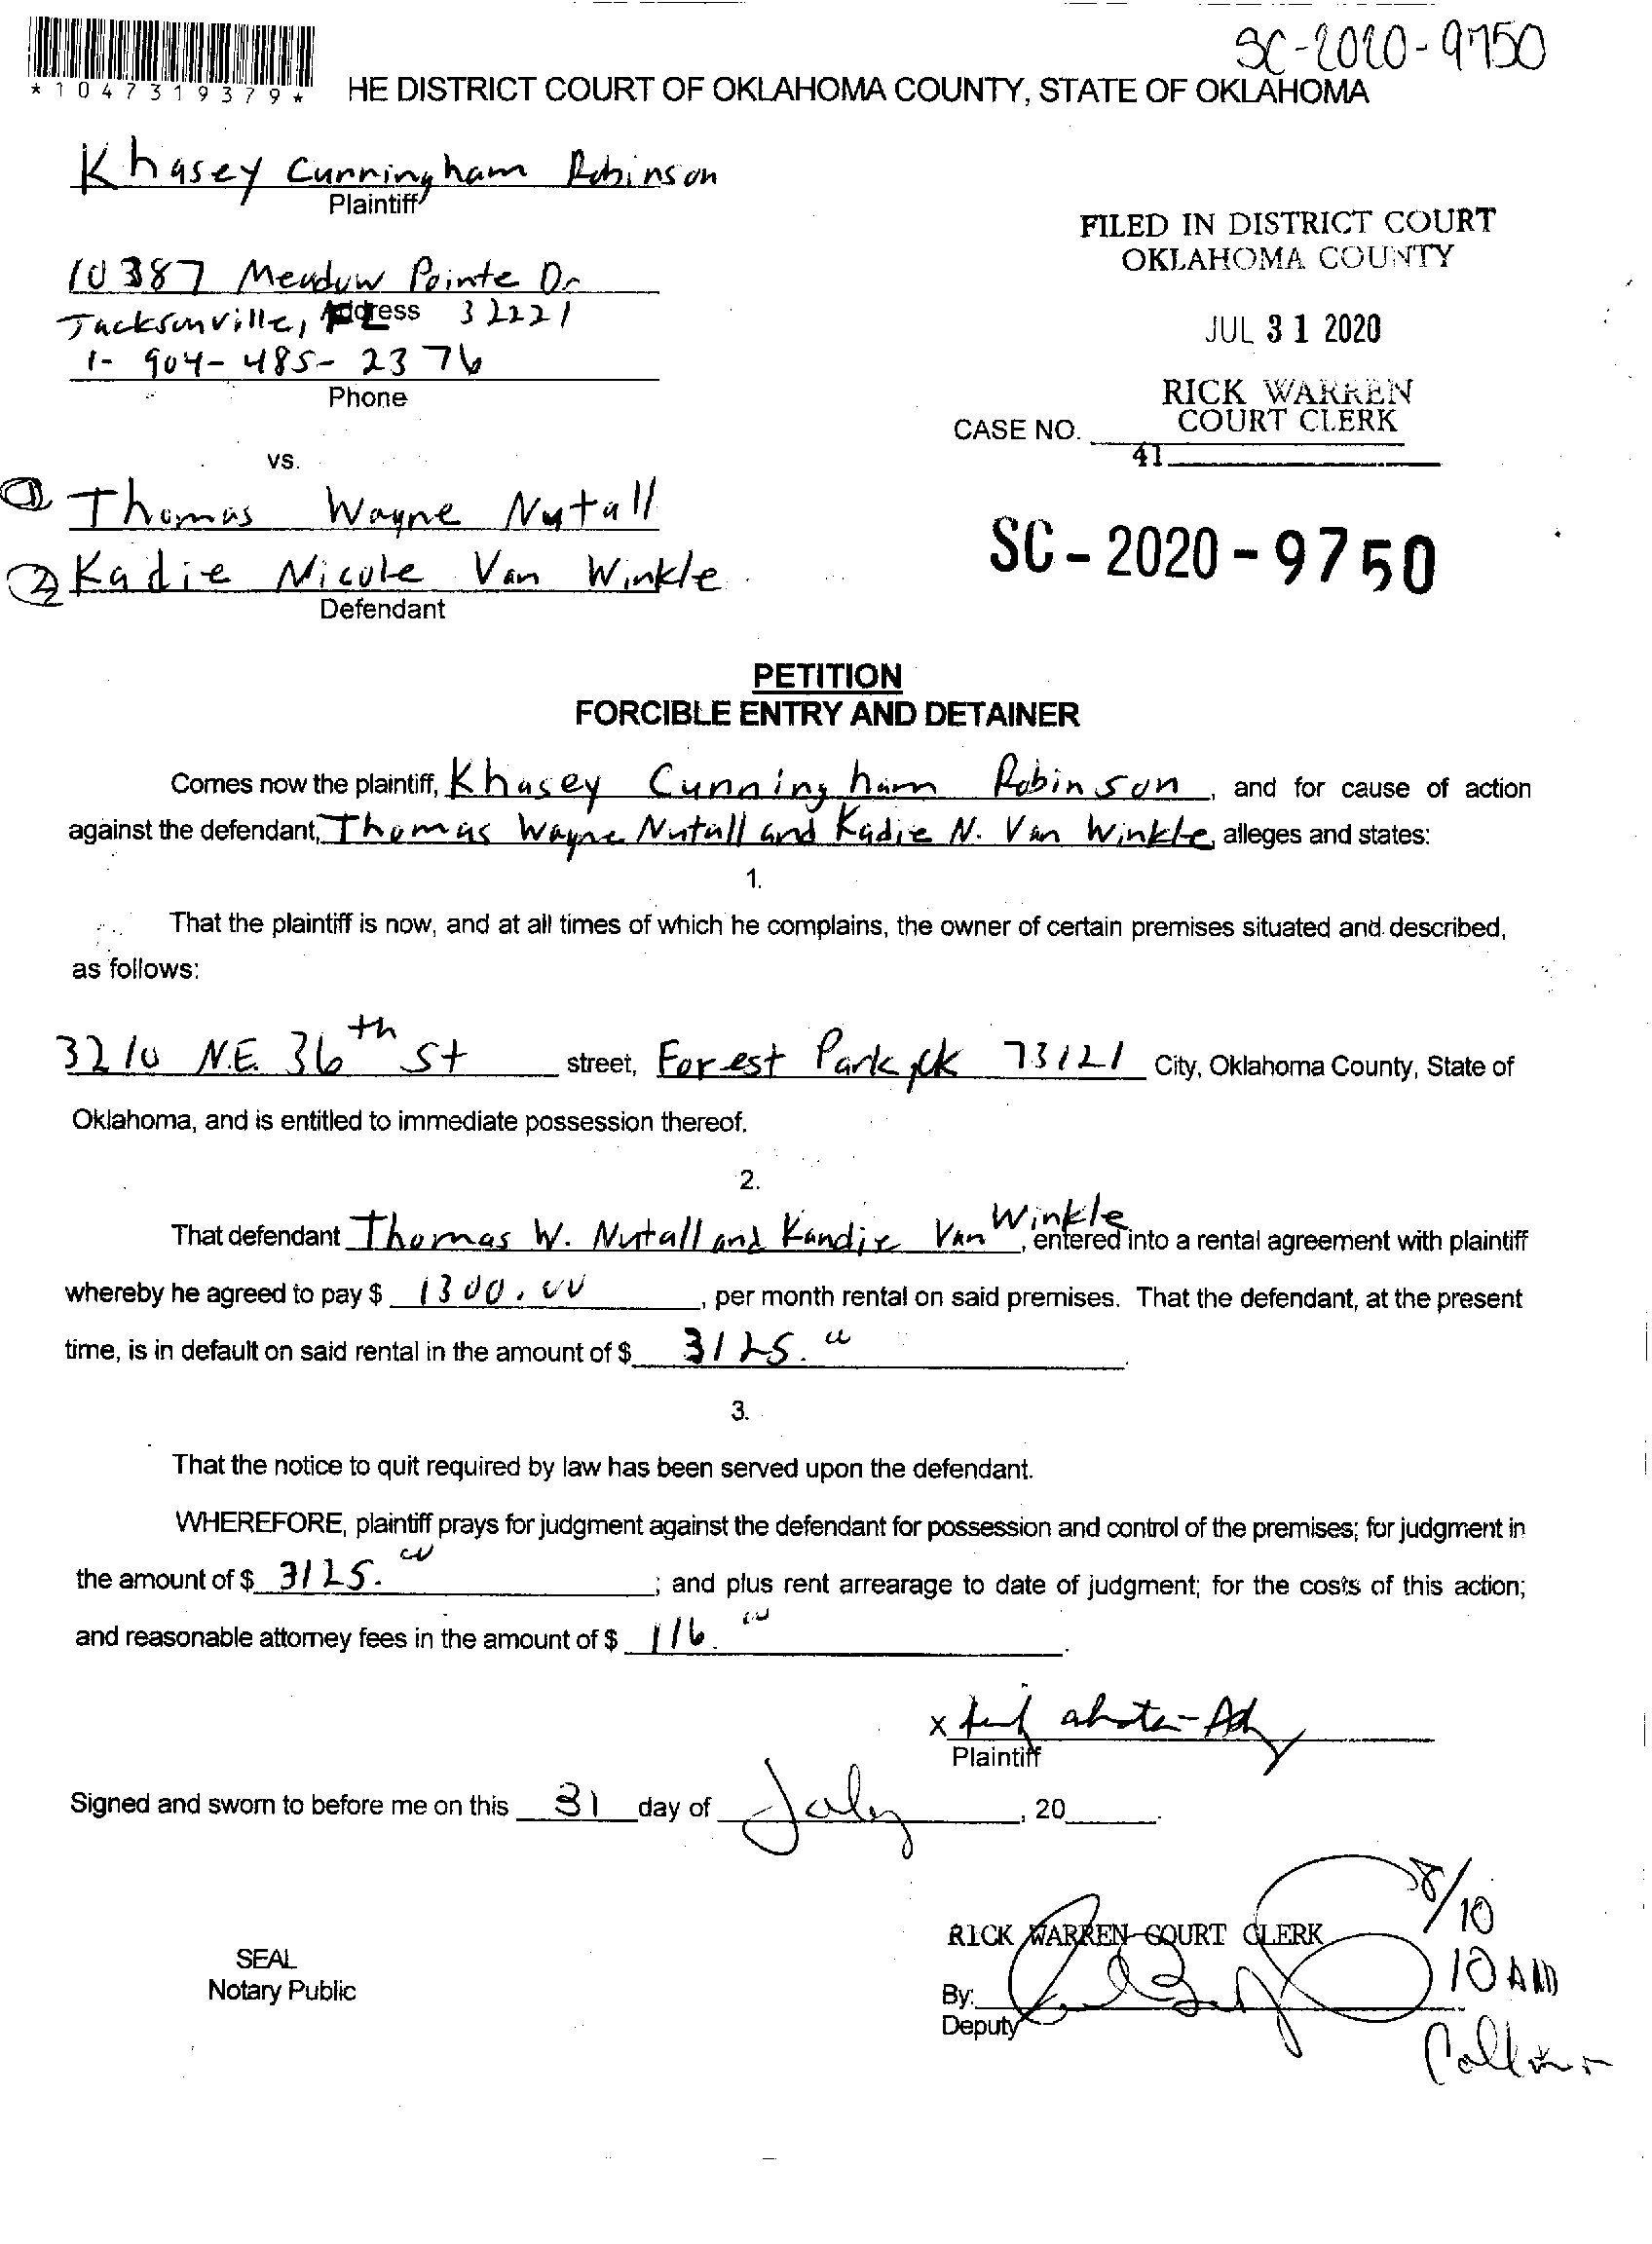 SC-2020-9750
*1047319379*
HE DISTRICT COURT OF OKLAHOMA COUNTY, STATE OF OKLAHOMA
Khasey Cunningham Robinson
Plaintiff
FILED IN DISTRICT COURT
OKLAHOMA COUNTY
10387 Meadow Pointe Dr
Address
Jacksonville, FL 32221
JUL 31 2020
1-904-485-2376
Phone
RICK WARREN
COURT CLERK
CASE NO.
41
vs.
① Thomas Wayne Nutall
② Kadie Nicole Van Winkle
Defendant
SC-2020-9750
PETITION
FORCIBLE ENTRY AND DETAINER
Comes now the plaintiff, Khasey Cunningham Robinson, and for cause of action
against the defendant, Thomas Wayne Nutall and Kadie N. Van Winkle, alleges and states:
1.
That the plaintiff is now, and at all times of which he complains, the owner of certain premises situated and described,
as follows:
3210 N.E. 36th St street, Forest Park, OK 73121 City, Oklahoma County, State of
Oklahoma, and is entitled to immediate possession thereof.
2.
That defendant Thomas W. Nutall and Kandie Van Winkle, entered into a rental agreement with plaintiff
whereby he agreed to pay $ 1300.00, per month rental on said premises. That the defendant, at the present
time, is in default on said rental in the amount of $ 3125.00.
3.
That the notice to quit required by law has been served upon the defendant.
WHEREFORE, plaintiff prays for judgment against the defendant for possession and control of the premises; for judgment in
the amount of $ 3125.00; and plus rent arrearage to date of judgment; for the costs of this action;
and reasonable attorney fees in the amount of $ 116.00.
x
Plaintiff
Signed and sworn to before me on this 31 day of July, 20.
8/10
RICK WARREN COURT CLERK
10 AM
SEAL
Notary Public
By:
Deputy